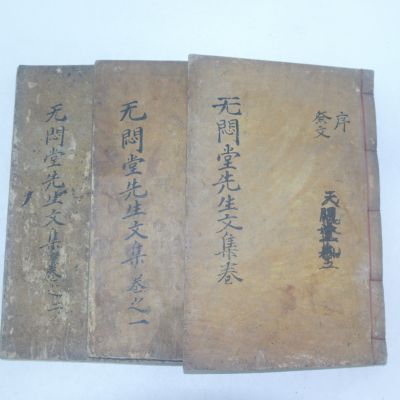 序
祭文
无悶堂先生文集卷
无悶堂先生文集卷之一
无悶堂先生文集卷之二